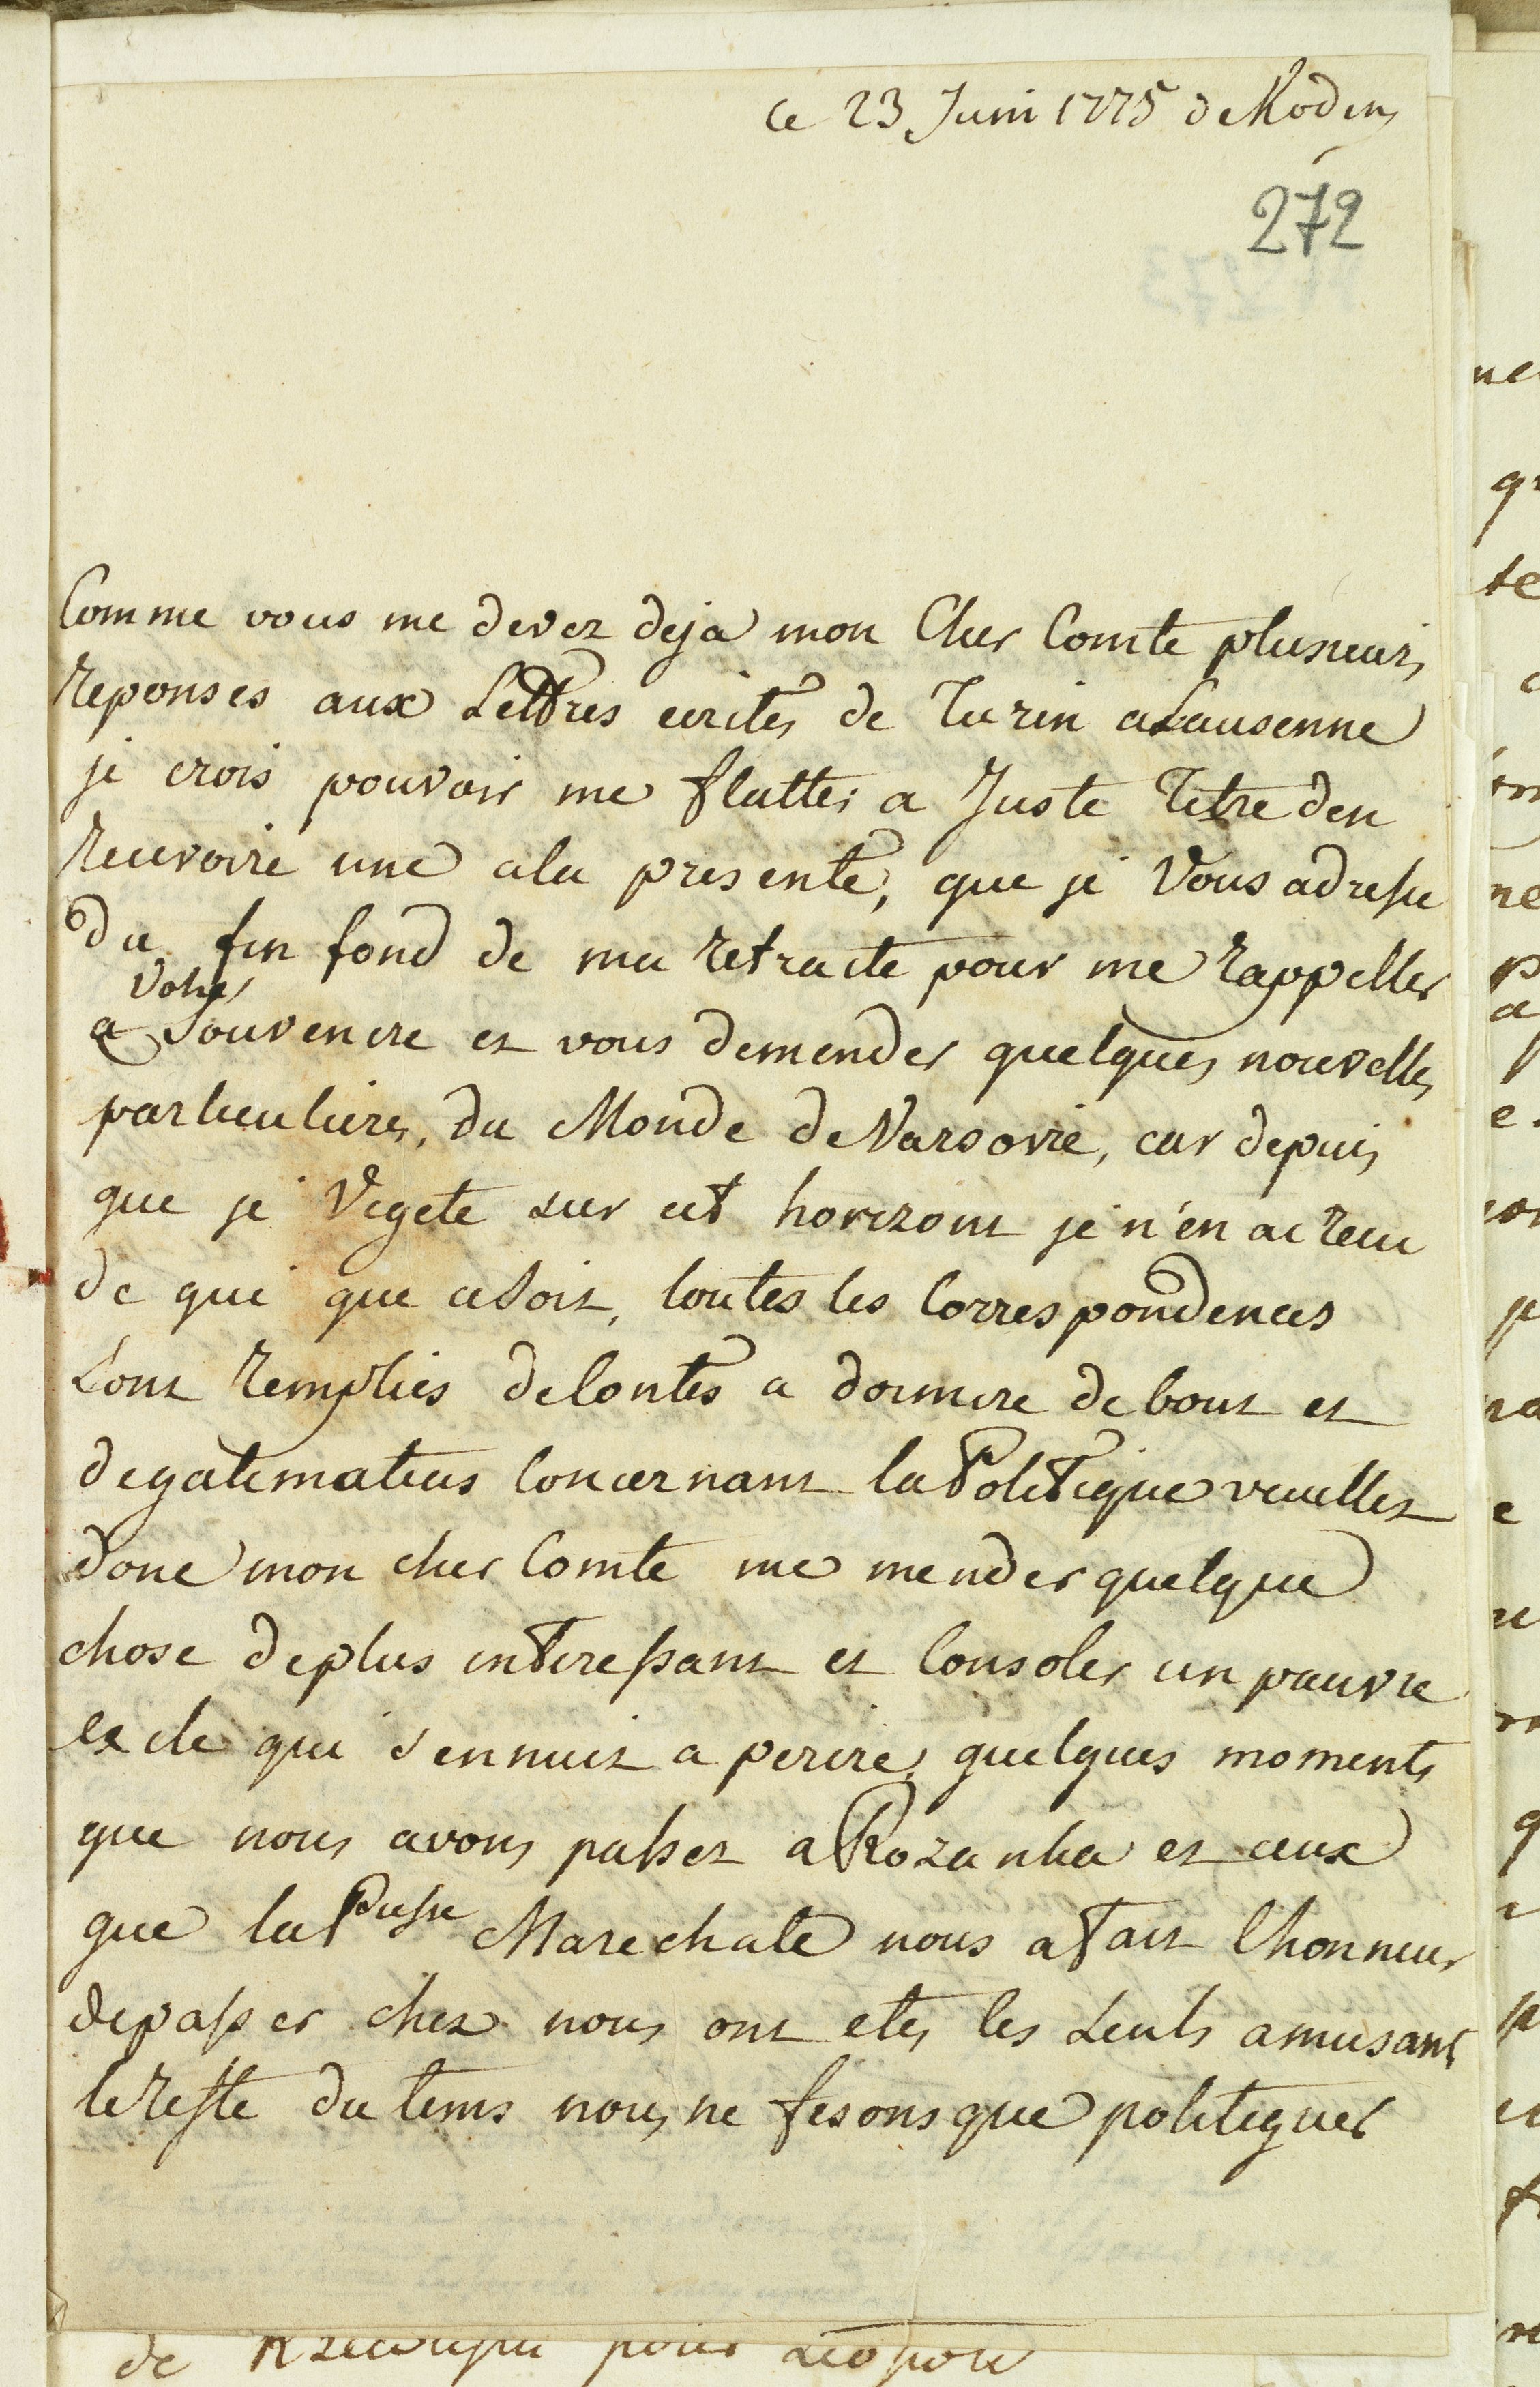 ce 23 Juin 1775 de Kodeny
272
Comme vous me devez deja mon Cher Comte plusieurs
reponses aux Lettres ecrites de Turin a Lausenne
je crois pouvoir me flatter a Juste Titre den
recevoire une ala presente, que je Vous adresse
du fin fond de ma retraite pour me rappeller
votre
a Souvenire et vous demender quelques nouvelles
particulieres, du Monde de Varsovie, car depuis
que je Vegete sur cet horizont je n'en ai recu
de qui que ce Soit, toutes les Correspondences
Sont remplies de Contes a dormire debout et
de galimatieus Concernant la Politique veuillez
donc mon cher Comte me mender quelque
chose de plus interessant et Consoler un pauvre
exile qui s'ennuit a perire, quelques moments
que nous avons passez a Rozanka et ceux
que la Pcesse Marechale nous a fait l'honneur
de passer chez nous ont etes les Seuls amusants
le reste du tems nous ne fesons que politiquer
de pour